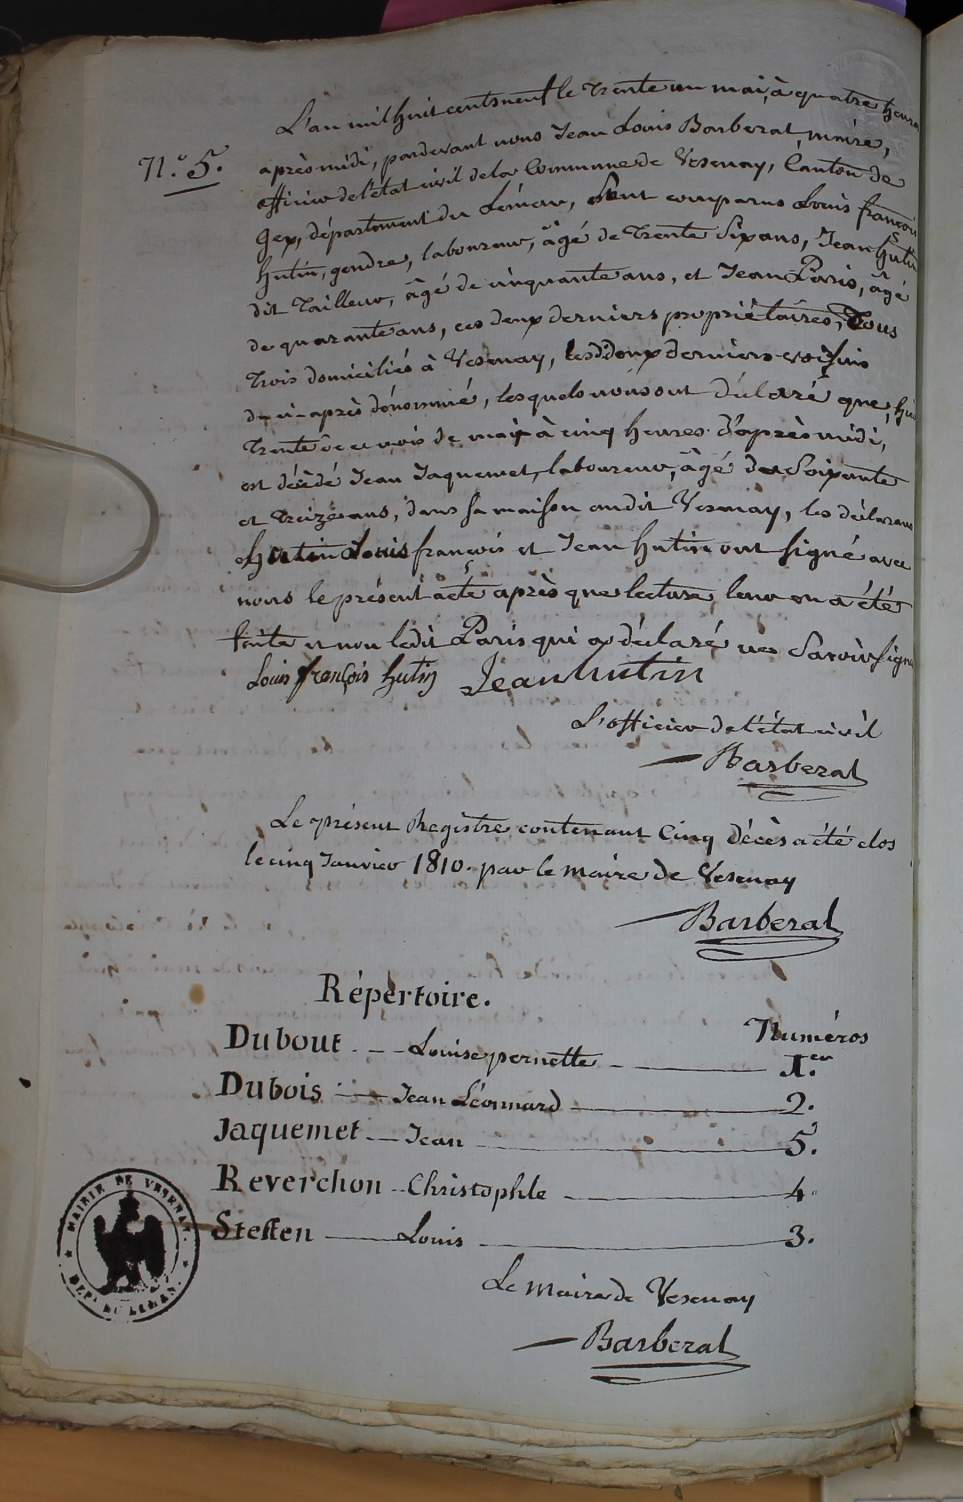 L'an mil huit cents neuf le trente un mai, à quatre heures
N.° 5. après midi, pardevant nous Jean Louis Barberat, maire,
officier de l'état civil de la Commune de Vesenay, Canton de
Gex, département du Léman, Sont comparus Louis françois
hutin, gendre, laboureur, âgé de trente Six ans, Jean hutin
dit Tailleur, âgé de cinquante ans, et Jean Paris, âgé
de quarante ans, ces deux derniers propriétaires, Tous
trois domiciliés à Vesenay, lesd. deux derniers voisins
du ci-après dénommé, lesquels nous ont déclaré que, hier
trente de ce mois de mai à cinq heures d'après midi,
est décédé Jean Jaquemet, laboureur, âgé de Soixante
et treize ans, dans sa maison audit Vesenay, les déclarans
hutin Louis françois et Jean hutin ont signé avec
nous le présent acte après que lecture leur en a été
faite et non ledit Paris qui a déclaré ne Savoir signer
Louis françois hutin Jean hutin
L'officier de l'état civil
Barberat
Le présent Registre contenant Cinq décès a été clos
le cinq Janvier 1810. par le maire de Vesenay
Barberat
Répertoire.
Numéros
Dubout - - Louise pernette - 1.er
Dubois - - Jean Léonnard 2.
Jaquemet - - Jean 5.
Reverchon - - Christophle 4.
Steffen - Louis 3.
Le Maire de Vesenay
Barberat
MAIRIE DE VESENAY.
DEP. DU LEMAN.